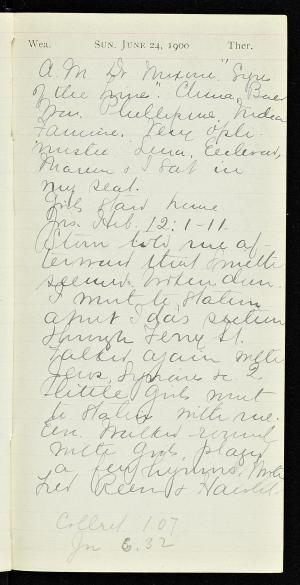 Wea. SUN. JUNE 24, 1900 Ther.
A.M. Dr "Signs
of the Times". China, Boer
War, Phillipine, India
Famine. Very opti-
mistic Lena,
Marion & I sat in
my seat.
Girls staid home
Jns. Heb. 12:1-11.
Storn told me af-
terward that Smith
seemed broken down.
I went to Station
through Ferry St.
Talked again with
Jews, Syrians & 2
little girls went
to Station with me.
Eve. Walked round
with Girls, played
a few hymns. Wrote
Fred Reen & Harold.
Collect 1.07
Jn 6.32